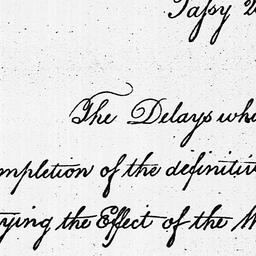 Jassy 2
The Delays whi
mpletion of the definitiv
ying the Effect of the M